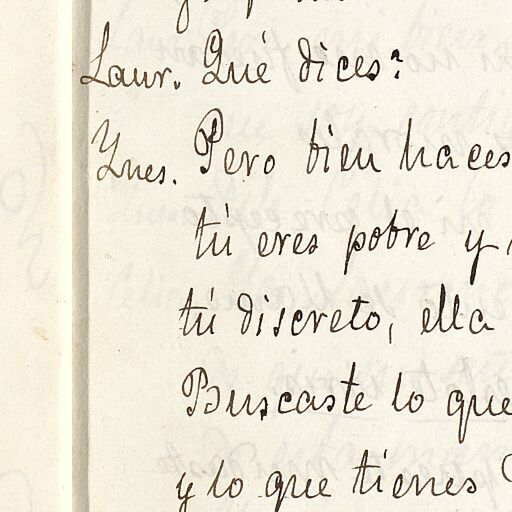 Laur. Qué dices?
Ynes. Pero bien haces
tú eres pobre y
tú discreto, ella
Buscaste lo que
y lo que tienes